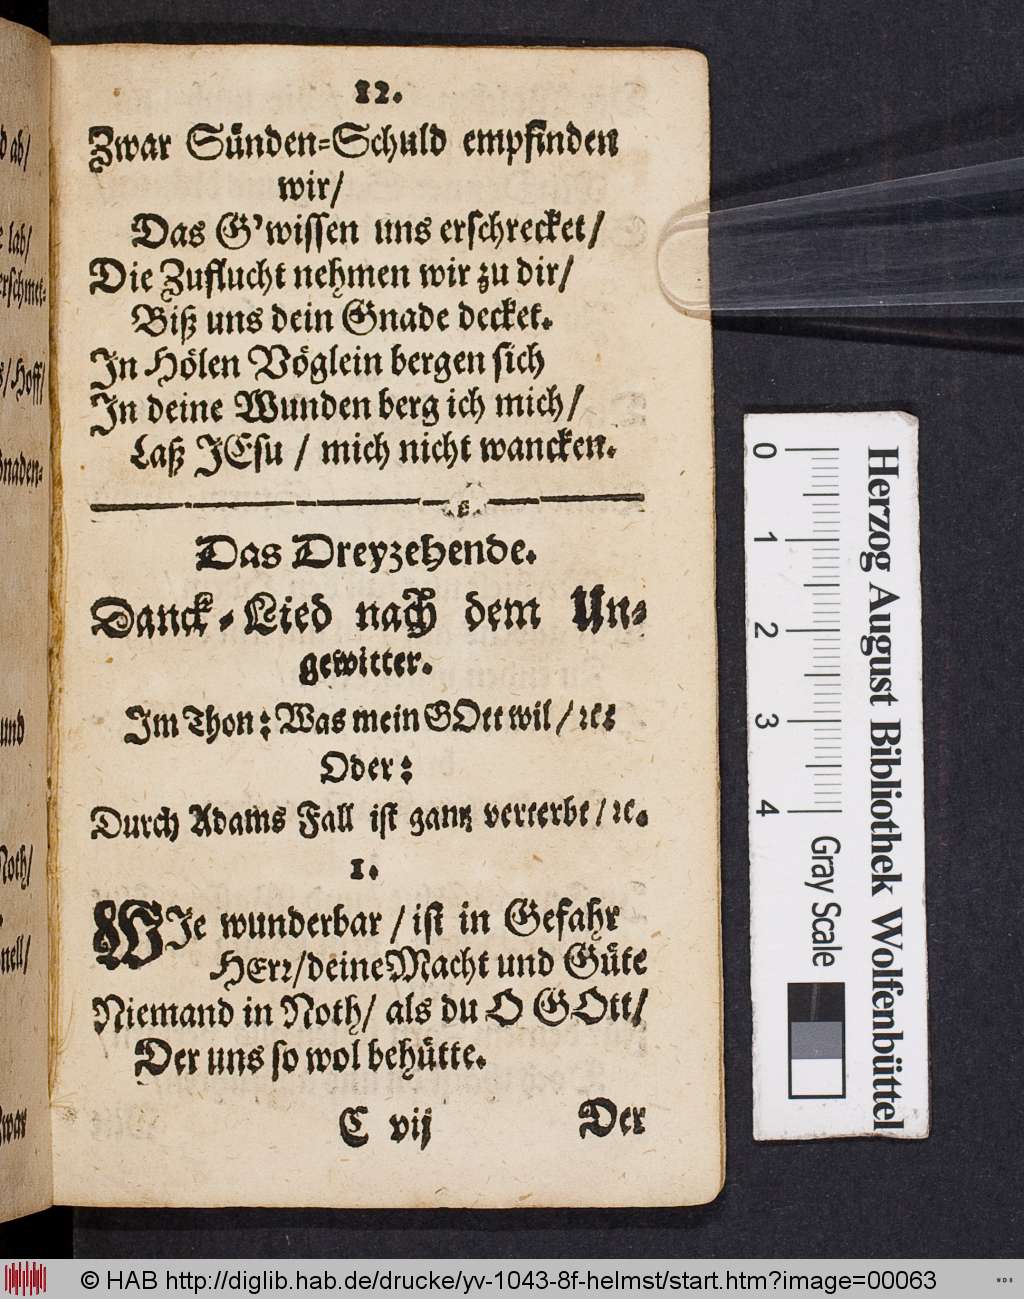 12.
Zwar Sünden-Schuld empfinden
wir/
Das G'wissen uns erschrecket/
Die Zuflucht nehmen wir zu dir/
Biß uns dein Gnade decket.
In Hölen Vöglein bergen sich
In deine Wunden berg ich mich/
Laß JEsu / mich nicht wancken.
Das Dreyzehende.
Danck-Lied nach dem Un-
gewitter.
Im Thon: Was mein GOtt wil / ꝛc.
Oder:
Durch Adams Fall ist gantz verterbt / ꝛc.
1.
WIe wunderbar / ist in Gefahr
HErꝛ/ deine Macht und Güte
Niemand in Noth/ als du O GOtt/
Der uns so wol behütte.
C vij Der
d ab/
lab/
erschmet-
/Hoff/
Gnaden-
und
Noth/
nell/
Zwar
0 1 2 3 4 Gray Scale
Herzog August Bibliothek Wolfenbüttel
© HAB http://diglib.hab.de/drucke/yv-1043-8f-helmst/start.htm?image=00063
WDB